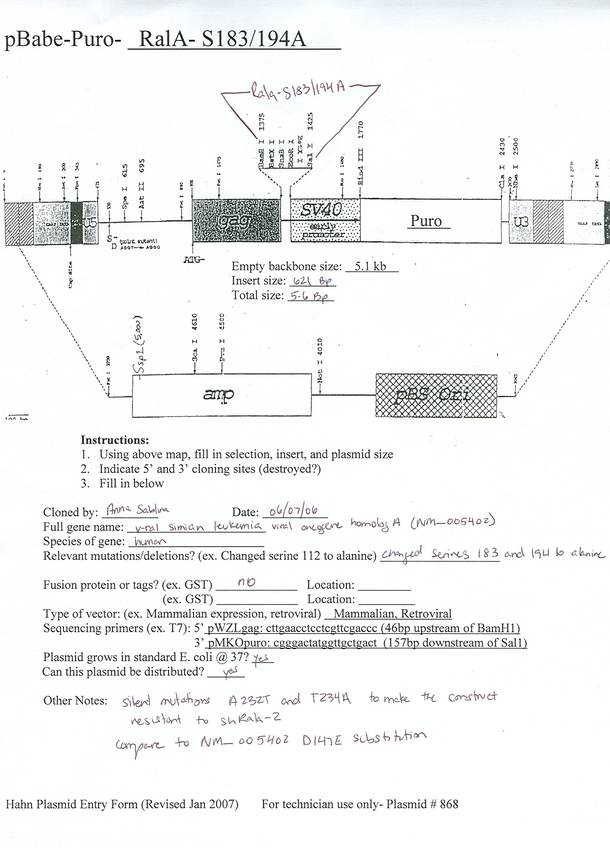 pBabe-Puro- RalA- S183/194A
Rala-S183/194A
BamH I 1375
BstX I
SnaB I
EcoR I
Sal I 1425
Hind III 1770
Cla I 2430
Nhe I 2500
Spe I 615
Aat II 695
U5
gag
SV40
early
promoter
Puro
U3
(point mutant)
ATG-
Empty backbone size: 5.1 kb
Insert size: 621 Bp
Total size: 5.6 Bp
Ssp1 (5,000)
Sca I 4610
Pvu I 4500
Not I 4010
amp
pBS Ori
Instructions:
1. Using above map, fill in selection, insert, and plasmid size
2. Indicate 5' and 3' cloning sites (destroyed?)
3. Fill in below
Cloned by: Anna Sablina Date: 06/07/06
Full gene name: v-ral simian leukemia viral oncogene homolog A (NM_005402)
Species of gene: human
Relevant mutations/deletions? (ex. Changed serine 112 to alanine) changed serines 183 and 194 to alanine
Fusion protein or tags? (ex. GST) no Location:
(ex. GST) Location:
Type of vector: (ex. Mammalian expression, retroviral) Mammalian, Retroviral
Sequencing primers (ex. T7): 5' pWZLgag: cttgaacctcctcgttcgaccc (46bp upstream of BamH1)
3' pMKOpuro: cgggactatggttgctgact (157bp downstream of Sal1)
Plasmid grows in standard E. coli @ 37? yes
Can this plasmid be distributed? yes
Other Notes: silent mutations A232T and T234A to make the construct
resistant to shRala-2
compare to NM_005402 D147E substitution
Hahn Plasmid Entry Form (Revised Jan 2007) For technician use only- Plasmid # 868